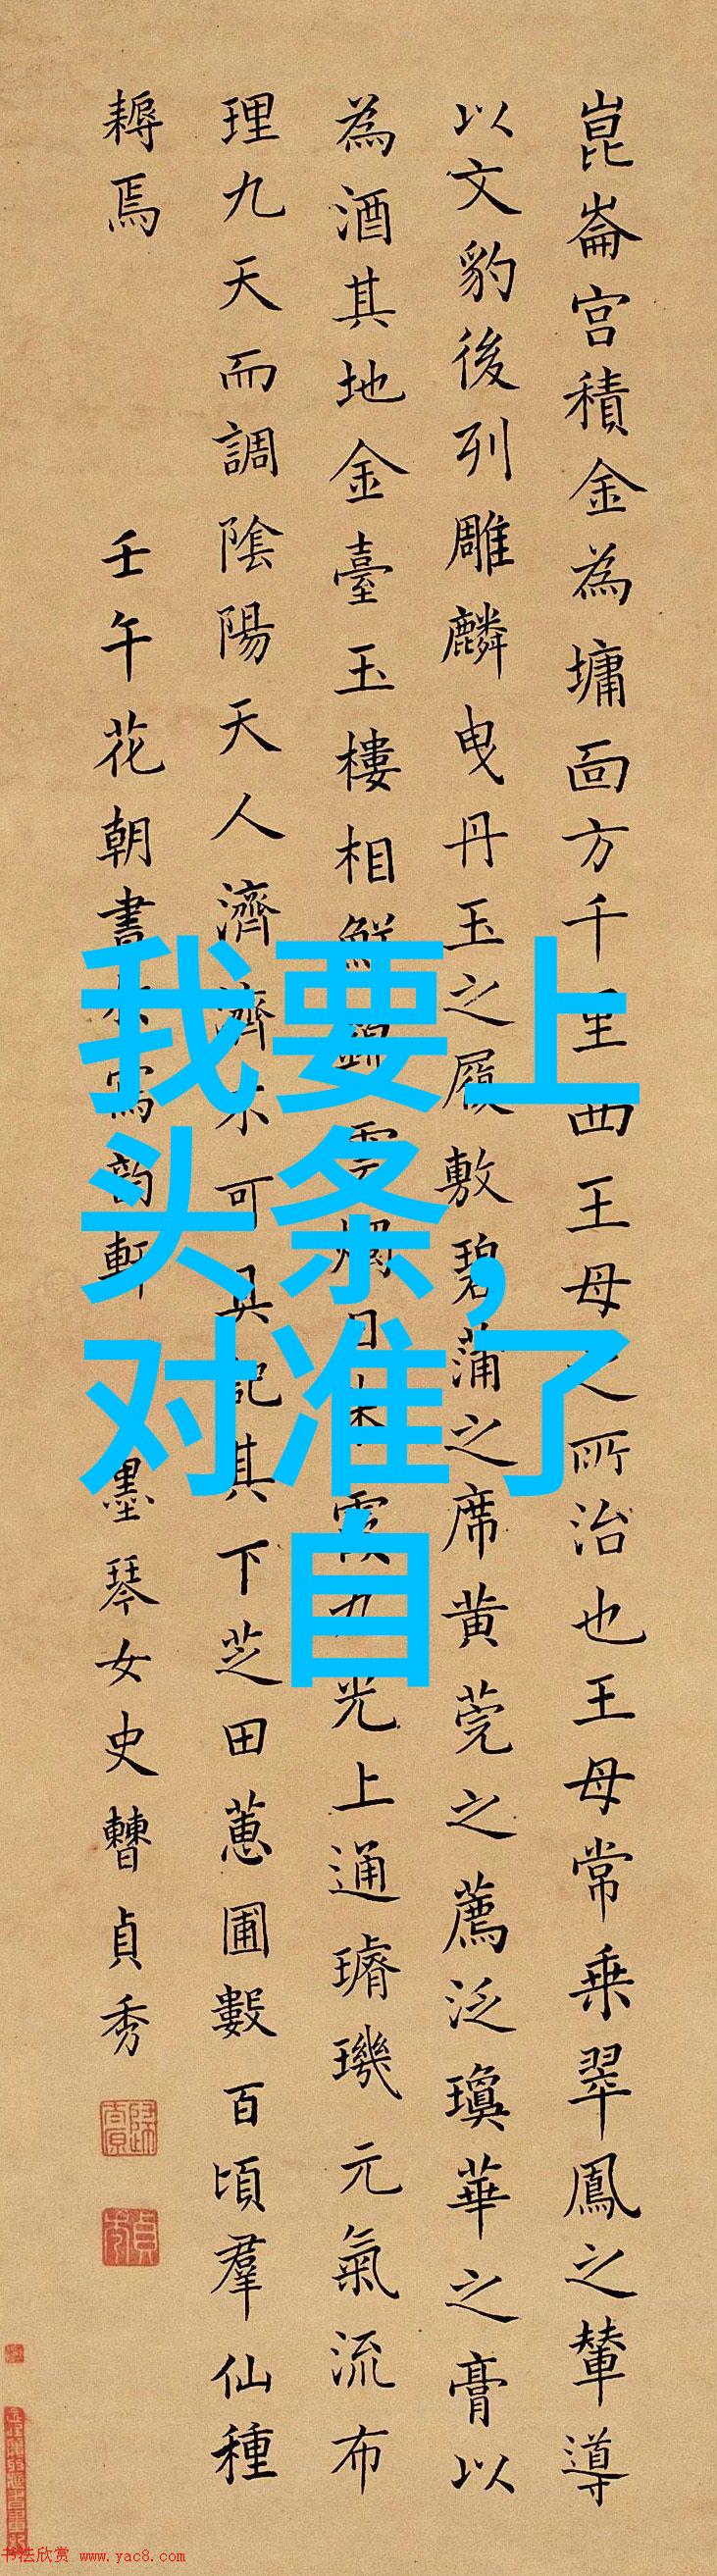 崑崙宮積金為墉面方千里西王母之所治也王母常乗翠鳳之輦導
以文豹後列雕麟曳丹玉之履敷碧蒲之席黄莞之薦泛瓊華之膏以
為酒其地金臺玉樓相鮮雲燭日朱霞九光上通璿璣元氣流布
理九天而調陰陽天人濟濟不可具記其下芝田蕙圃數百頃羣仙種
耨焉
壬午花朝書於寫韵軒 墨琴女史曹貞秀
我要上
头条，
对准了
自
书法欣赏 www.yac8.com